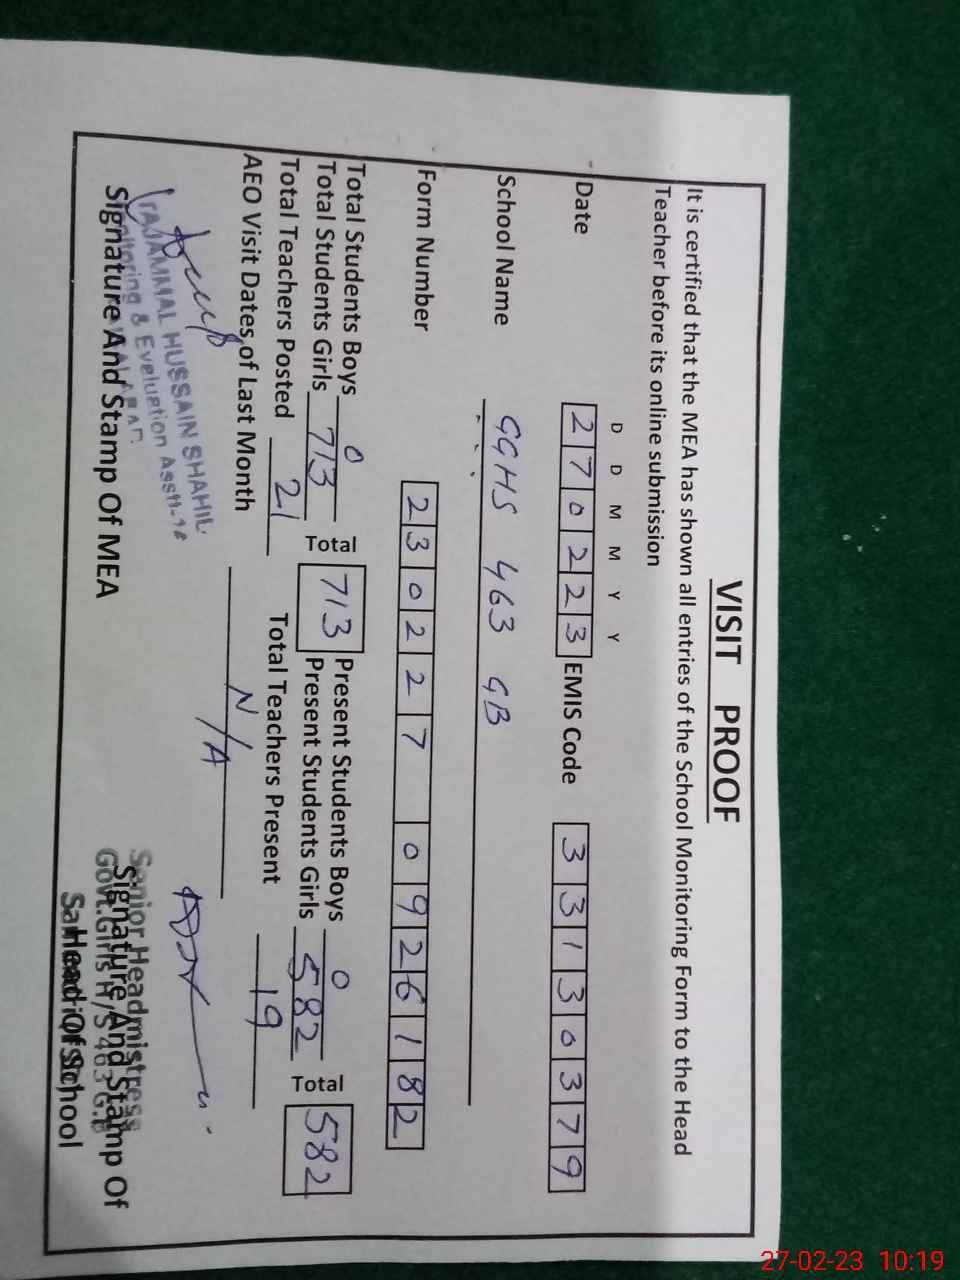 VISIT PROOF
It is certified that the MEA has shown all entries of the School Monitoring Form to the Head
Teacher before its online submission
D D M M Y Y
Date 270223 EMIS Code 33130379
School Name GGHS 463 GB
Form Number 230227 0926182
Total Students Boys 0 Present Students Boys 0
Total Students Girls 713 Total 713 Present Students Girls 582 Total 582
Total Teachers Posted 21 Total Teachers Present 19
AEO Visit Dates of Last Month N/A
TAJAMMAL HUSSAIN SHAHIL
Monitoring & Eveluption Asstt-18
Signature And Stamp Of MEA
Senior Headmistress
Signature And Stamp Of
Govt.Girls H/S 463 G.B
Head Of School
27-02-23 10:19